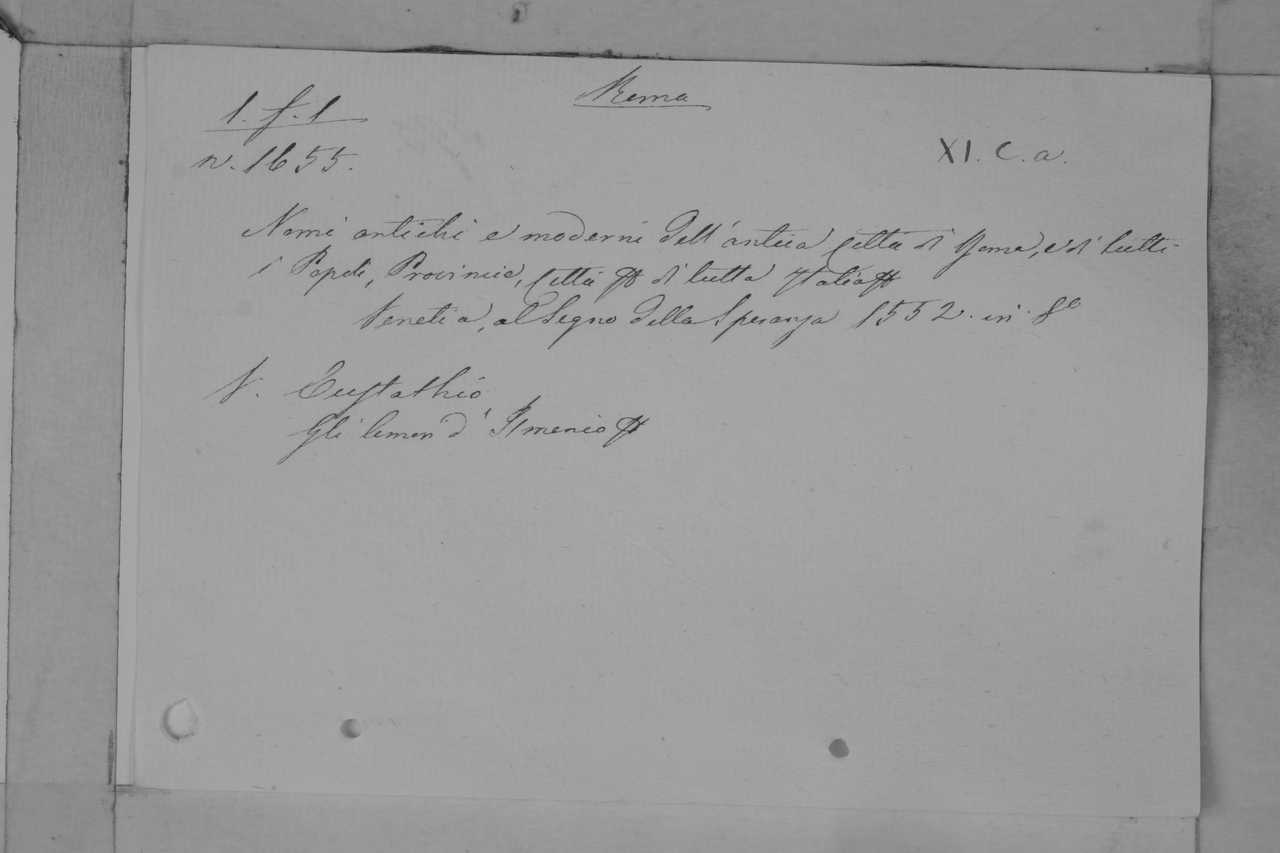 Roma
1. f. 1
n. 1655.
XI. C. a.
Nomi antichi e moderni dell' antica Città di Roma, e di tutti
i Popoli, Provincie, Città & di tutta Italia &
Venetia, al Segno della Speranza 1552. in 8º
V. Eustathio
Gli Amori d' Ismenio &